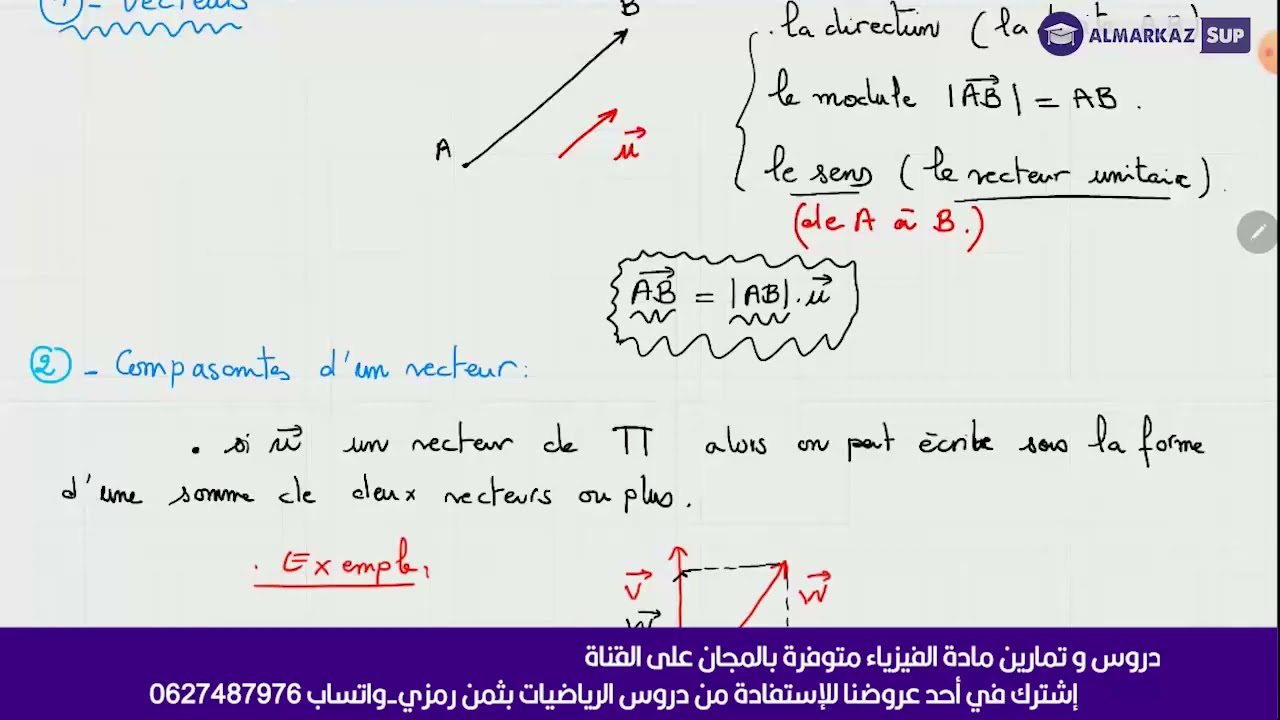 1 - Vecteurs
B
. la direction (la
ALMARKAZ SUP
le module |AB| = AB .
A
u
le sens (le vecteur unitaire).
(de A à B.)
AB = |AB| . u
2 - Composantes d'un vecteur :
. si w un vecteur de Π alors on peut écribe sous la forme
d'une somme de deux vecteurs ou plus.
. Exemple,
V
W
W
دروس و تمارين مادة الفيزياء متوفرة بالمجان على القناة
إشترك في أحد عروضنا للإستفادة من دروس الرياضيات بثمن رمزي-واتساب 0627487976